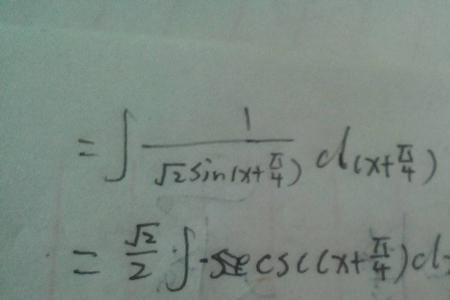 = ∫ 1/(√2 sin(x+π/4)) d(x+π/4)
= √2/2 ∫ csc(x+π/4)d